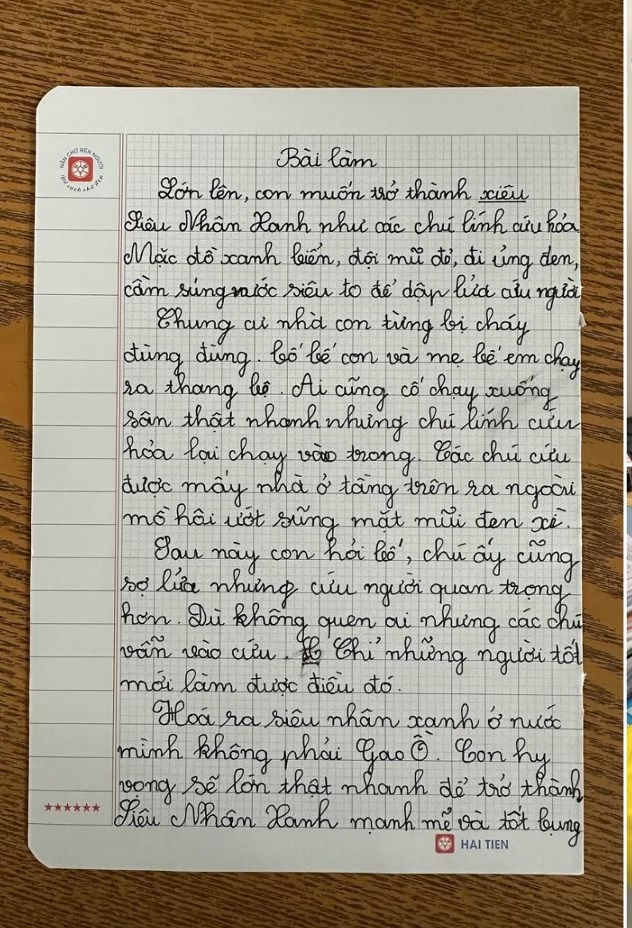 NẮN CHỮ RÈN NGƯỜI
Bài làm
Lớn lên, con muốn trở thành xiêu
Siêu Nhân Xanh như các chú lính cứu hỏa
Mặc đồ xanh biển, đội mũ đỏ, đi ủng đen,
cầm súng nước siêu to để dập lửa cứu người
Chung cư nhà con từng bị cháy
đùng đùng. bố bế con và mẹ bế em chạy
ra thang bộ. Ai cũng cố chạy xuống
sân thật nhanh nhưng chú lính cứu
hỏa lại chạy vào trong. Các chú cứu
được mấy nhà ở tầng trên ra ngoài
mồ hôi ướt sũng mặt mũi đen xì.
Sau này con hỏi bố, chú ấy cũng
sợ lửa nhưng cứu người quan trọng
hơn. Dù không quen ai nhưng các chú
vẫn vào cứu. Chỉ những người tốt
mới làm được điều đó.
Hoá ra siêu nhân xanh ở nước
mình không phải Gao Ồ. Con hy
vọng sẽ lớn thật nhanh để trở thành
Siêu Nhân Xanh mạnh mẽ và tốt bụng
HAI TIEN